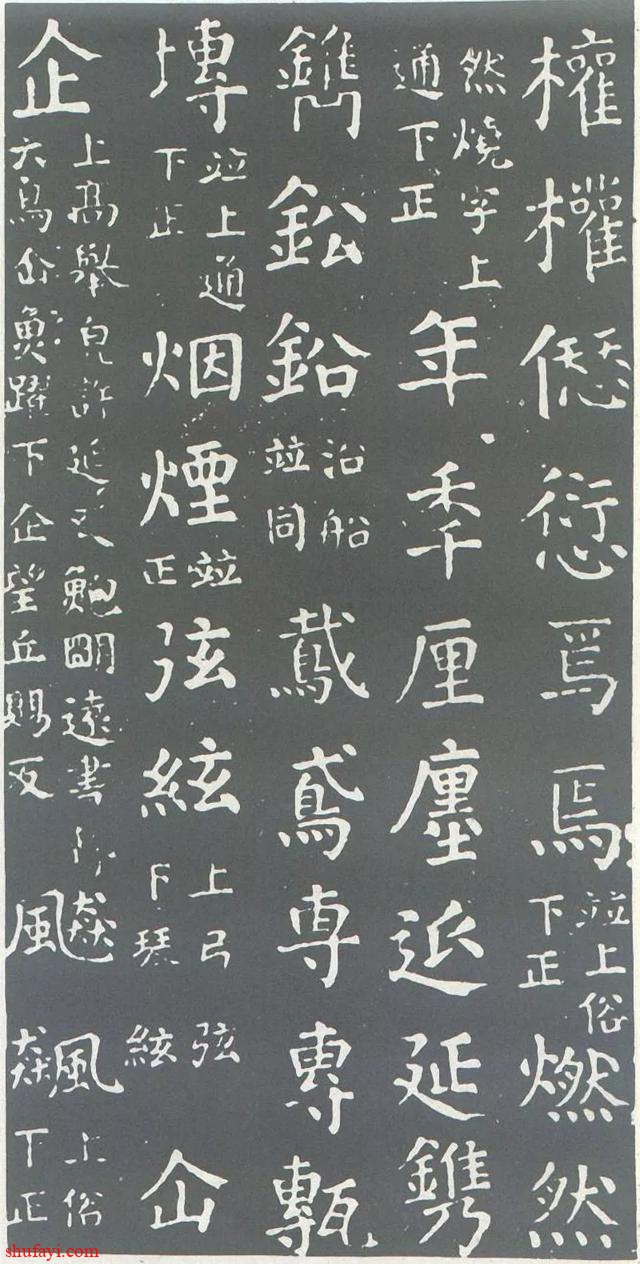 權權愆愆焉焉竝上俗下正燃然
然燒字上通下正年秊厘廛延鐫
鐫鈆鉛沿船竝同鳶専專甎
塼竝上通下正烟煙竝正弦絃上弓弦下琴絃仚
企上高舉皃許延反鮑明遠書鳥仚魚躍下企望丘賜反飈飆上俗下正
shufayi.com